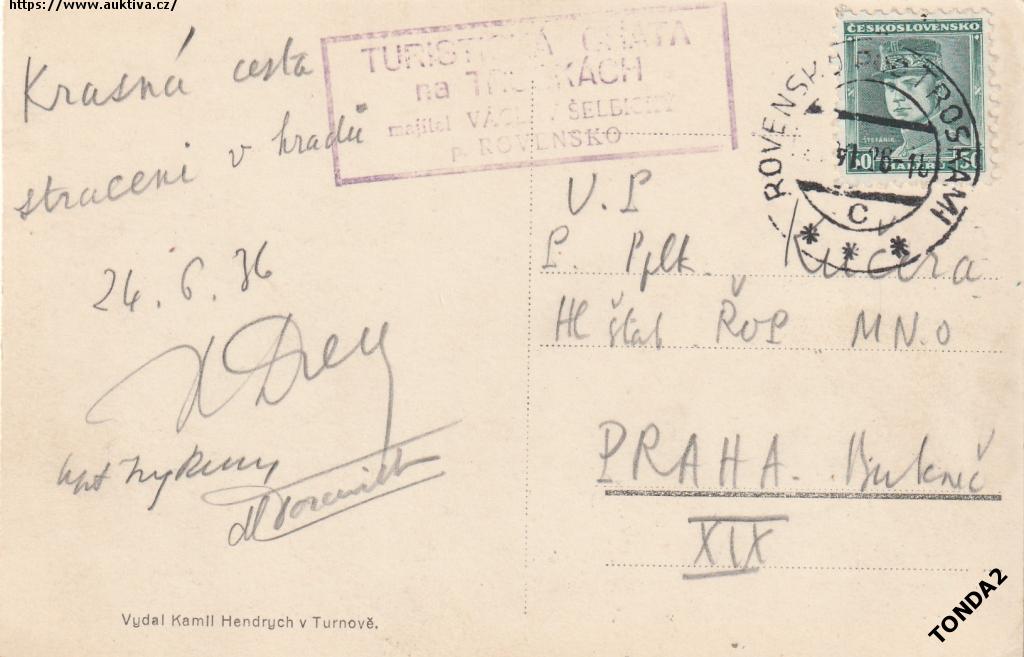 https://www.auktiva.cz/
Krasná cesta
straceni v hradů
24.6.36
TURISTICKÁ CHATA
na TROSKÁCH
majitel VÁCLAV ŠELBICKÝ
p. ROVENSKO
ČESKOSLOVENSKO
ŠTEFÁNIK
50 HALÉŘŮ 50
ROVENSKO POD TROSKAMI
C
V.P
P. Pplk. Kučera
Hl štab ŘOP MN.O
PRAHA.
XIX
Vydal Kamil Hendrych v Turnově.
TONDA2